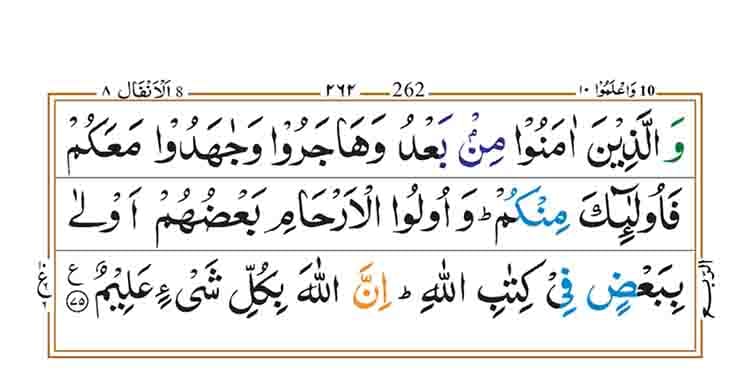 ٨ اَلْاَنْفَال 8 ٢٦٢ 262 ١٠ وَاعْلَمُوْا 10
وَالَّذِيْنَ اٰمَنُوْا مِنْۢ بَعْدُ وَهَاجَرُوْا وَجٰهَدُوْا مَعَكُمْ
فَاُولٰٓئِكَ مِنْكُمْ ؕ وَاُولُوا الْاَرْحَامِ بَعْضُهُمْ اَوْلٰى
بِبَعْضٍ فِىْ كِتٰبِ اللّٰهِ ؕ اِنَّ اللّٰهَ بِكُلِّ شَىْءٍ عَلِيْمٌ ۝٧٥ ع
الربع